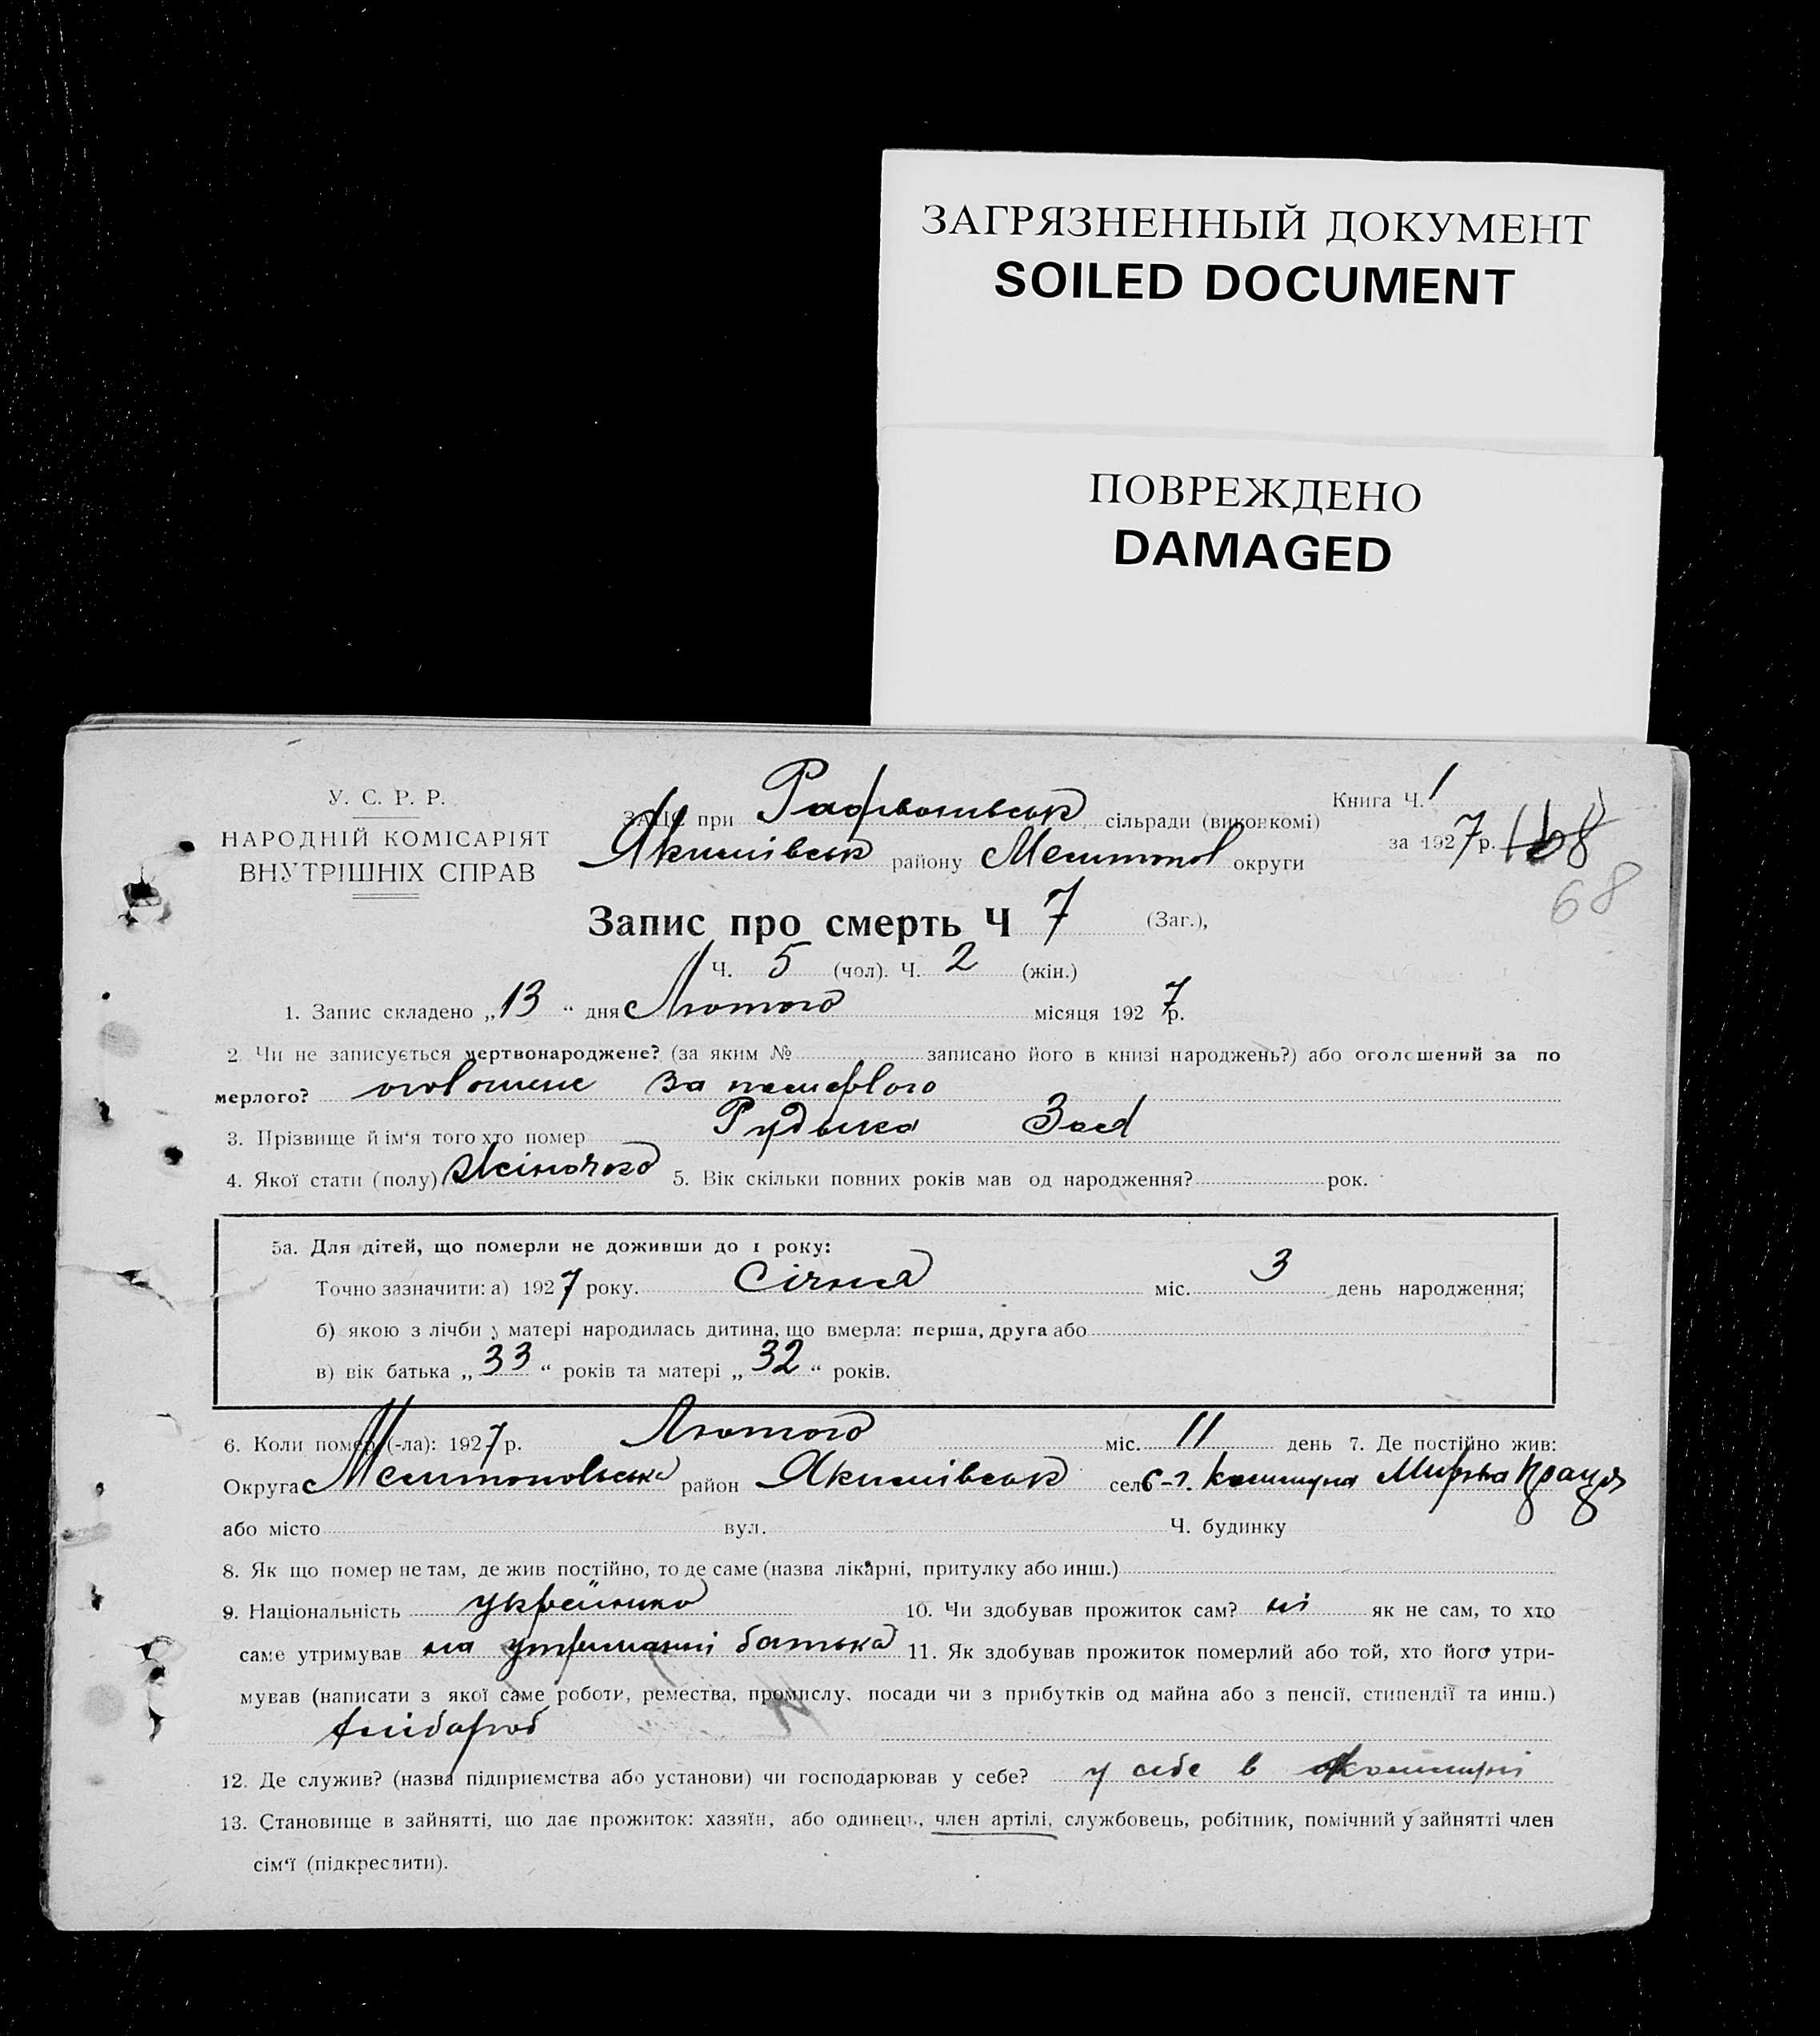 ЗАГРЯЗНЕННЫЙ ДОКУМЕНТ
SOILED DOCUMENT
ПОВРЕЖДЕНО
DAMAGED
У. С. Р. Р.
НАРОДНІЙ КОМІСАРІЯТ
ВНУТРІШНІХ СПРАВ
ЗАЦС при сільради (виконкомі)
Якимівськ району Мелитопол округи
Книга Ч. 1
за 1927 р. 168
68
Запис про смерть Ч 7 (Заг.),
Ч. 5 (чол). Ч. 2 (жін.)
1. Запис складено „13“ дня Лютого місяця 1927 р.
2. Чи не записується мертвонароджене? (за яким № записано його в книзі народжень?) або оголошений за по
мерлого? за померлого
3. Прізвище й ім‘я того хто помер
4. Якої стати (полу) Жіночого 5. Вік скільки повних років мав од народження? рок.
5а. Для дітей, що померли не доживши до 1 року:
Точно зазначити: а) 1927 року. Січня міс. 3 день народження;
б) якою з лічби у матері народилась дитина, що вмерла: перша, друга або
в) вік батька „33“ років та матері „32“ років.
6. Коли помер (-ла): 1927 р. Лютого міс. 11 день 7. Де постійно жив:
Округа Мелитопольська район Якимівськ село с-г. комуна Мирна Праця
або місто вул. Ч. будинку
8. Як що помер не там, де жив постійно, то де саме (назва лікарні, притулку або инш.)
9. Національність українка 10. Чи здобував прожиток сам? ні як не сам, то хто
саме утримував на утриманні батька 11. Як здобував прожиток померлий або той, хто його утри-
мував (написати з якої саме роботи, ремества, промислу, посади чи з прибутків од майна або з пенсії, стипендії та инш.)
хлібороб
12. Де служив? (назва підприємства або установи) чи господарював у себе? у себе в комуні
13. Становище в зайнятті, що дає прожиток: хазяїн, або одинець, член артілі, службовець, робітник, помічний у зайнятті член
сім‘ї (підкреслити).